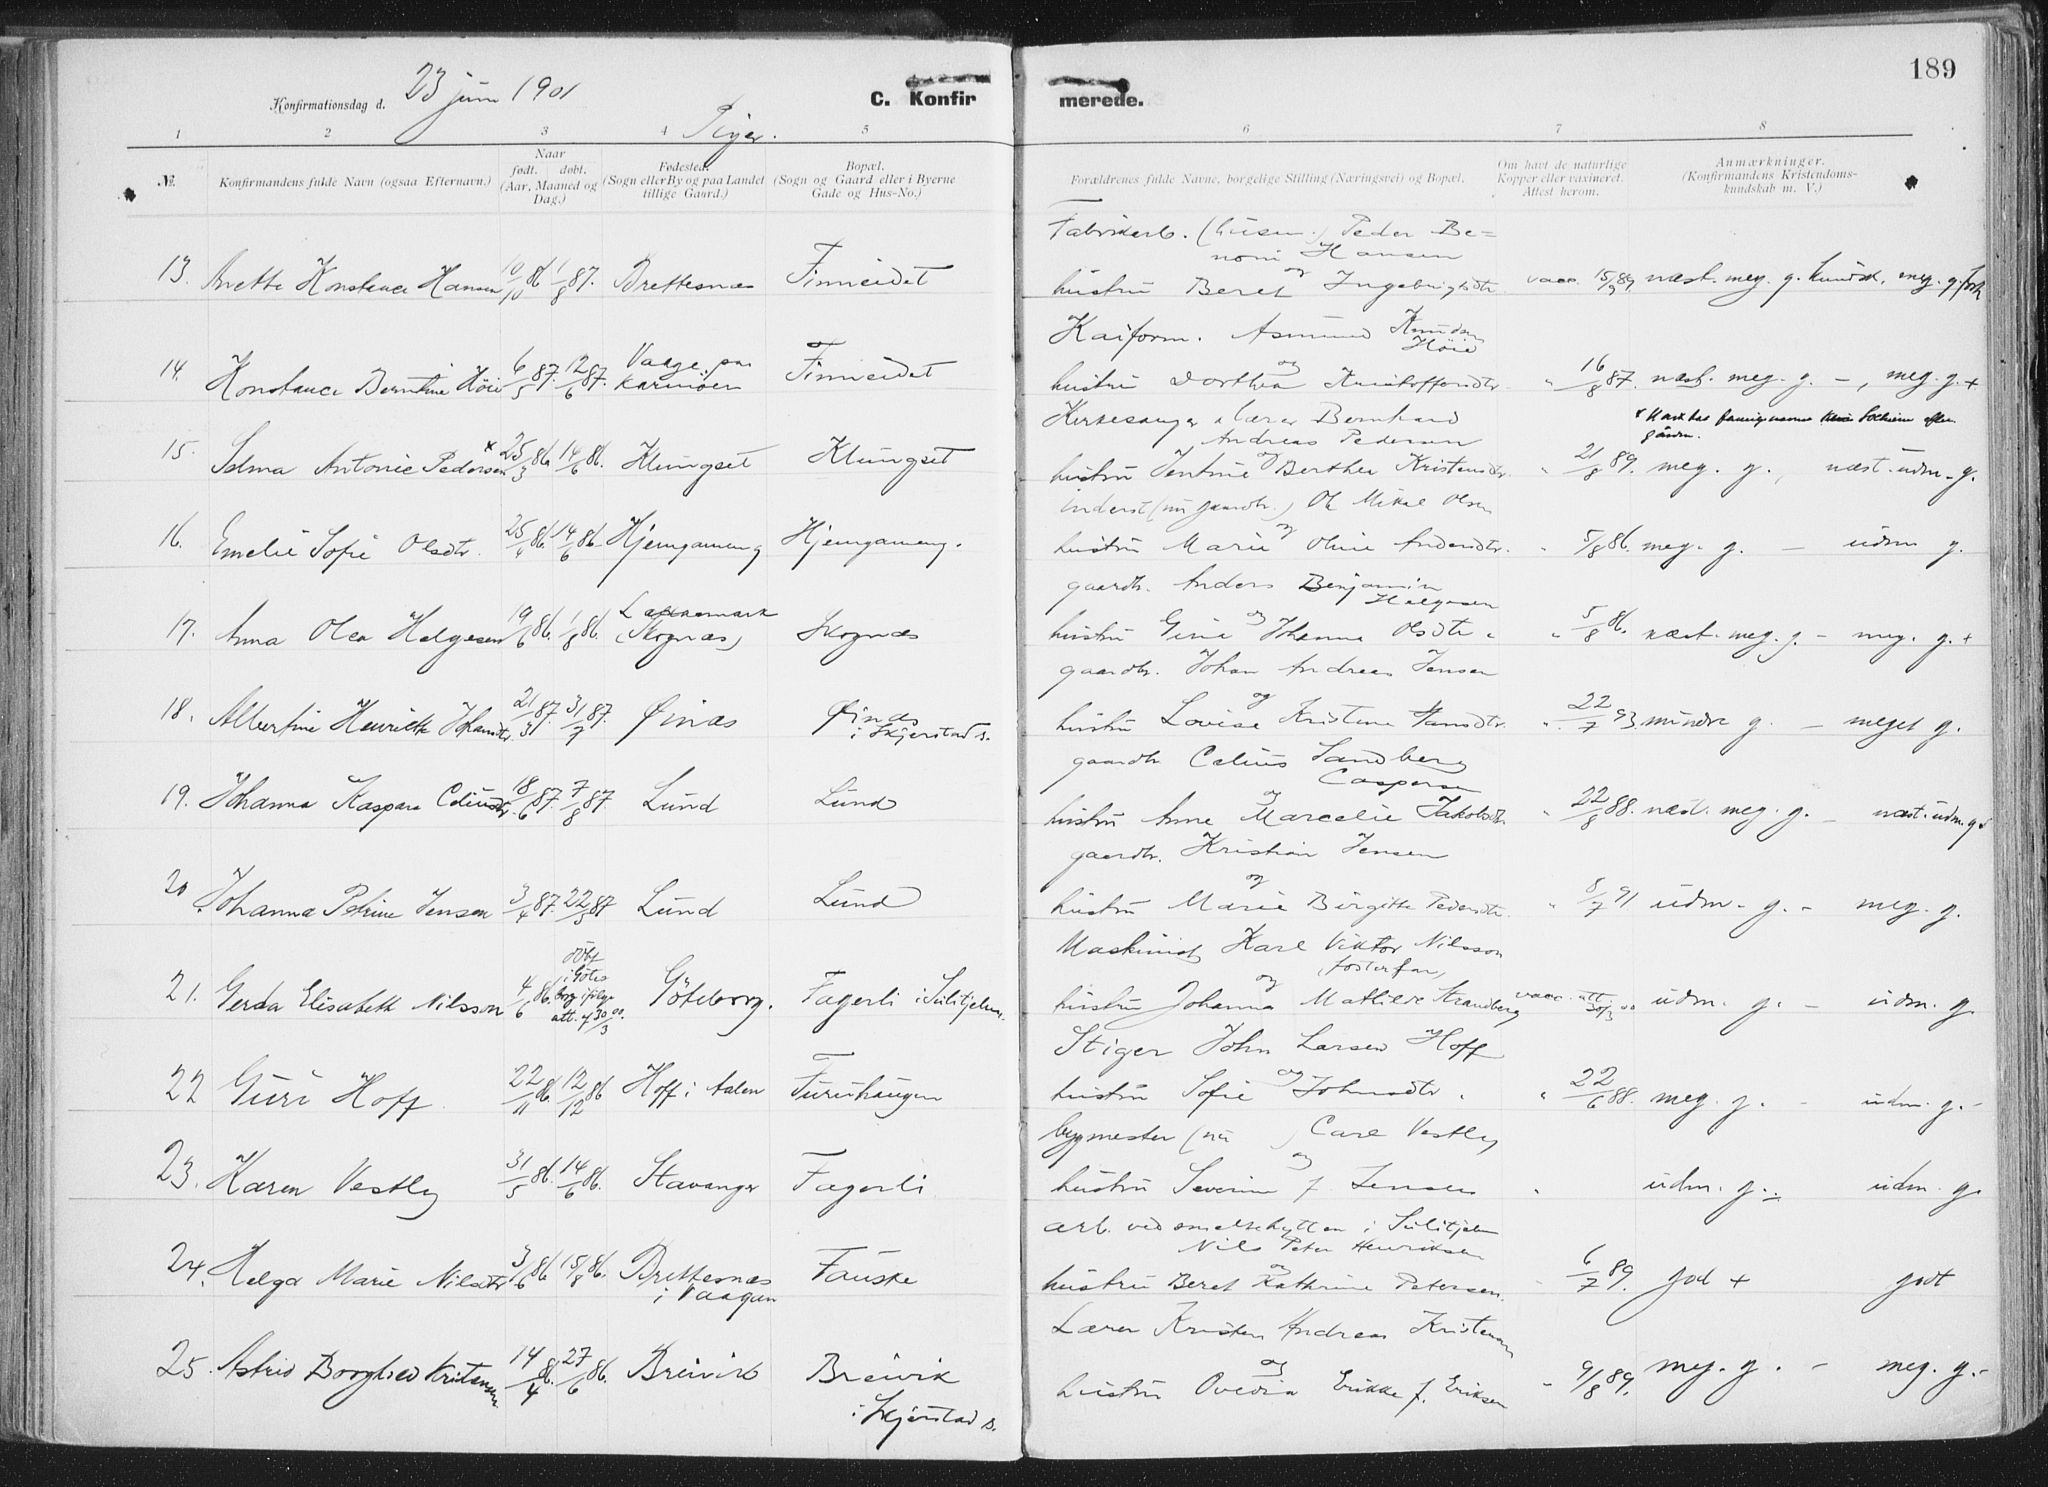 189
Konfirmationsdag d. 23 juni 1901
C. Konfirmerede.
Piger.
1 2 3 4 5 6 7 8
№.
Konfirmandens fulde Navn (ogsaa Efternavn.)
Naar
født. døbt.
(Aar, Maaned og
Dag.)
Fødested.
(Sogn eller By og paa Landet
tillige Gaard.)
Bopæl.
(Sogn og Gaard eller i Byerne
Gade og Hus-No.)
Forældrenes fulde Navne, borgelige Stilling (Næringsvei) og Bopæl.
Om havt de naturlige
Kopper eller vaxineret.
Attest herom.
Anmærkninger.
(Konfirmandens Kristendoms-
kundskab m. V.)
Fabrikarb. (husm.) Peder Be=
noni Hansen
og
13. Anette Konstance Hansen 10/10 86 1/8 87. Brettesnæs Finneidet hustru Beret Ingebrigtsdtr. vacc. 15/9 89. næst. meg. g. kundsk. meg. g.
Kaiform. Asmund Knudsen
Høie
og
14. Konstance Berntine Høie 6/5 87. 12/6 87. Valge paa Karmøen Finneidet hustru Dorthea Kristoffersdtr. " 16/8 87. næst. meg. g. -, meg. g. +
Kirkesanger & lærer Bernhard
Andreas Pedersen
og
15. Selma Antonie Pedersen x 25/3 86. 14/6 86. Klungset Klungset hustru Jentine Berthea Kristensdtr. " 21/8 89. meg. g., næst. udm. g.
inderst (nu gaardbr.) Ole Mikal Olsen
og
16. Emelie Sofie Olsdtr. 25/4 86. 14/6 86. Hjemgammen Hjemgammen. hustru Marie Oline Andersdtr. " 5/8 86. meg. g. - udm g.
gaardbr. Anders Benjamin
Helgesen
og
17. Anna Olea Helgesen 19/6 86. 1/8 86. (Skognæs) Skognæs hustru Gina Johanna Olsdtr. " 5/8 86. næst. meg. g. - meg. g. +
gaardbr. Johan Andreas Jensen
og
18. Albertine Henrikke Johansdtr. 21/3 87. 31/7 87. Øinæs Øinæs i Skjerstad s. hustru Lovise Kristine Hansdtr. " 22/7 93. mindre g. - meget g.
gaardbr. Celius Sandberg
Caspersen
og
19. Johanna Kaspara Celiusdtr. 18/6 87. 7/8 87. Lund Lund hustru Anne Marcelie Jakobsdtr. " 22/8 88. næst. meg. g. - næst. udm. g.
gaardbr. Kristian Jensen
og
20. Johanna Petrine Jensen 3/4 87. 22/5 87 Lund Lund hustru Marie Birgitte Pedersdtr. " 8/7 91 udm. g. - meg. g.
Maskinist Karl Viktor Nilsson
(fosterfar)
og
21. Gerda Elisabeth Nilsson 4/6 86. döbt i Göteborg ifølge att. af 30/3 00. Göteborg. Fagerli i Sulitjelma. hustru Johanna Mathilde Strandberg vacc. att. 30/3 00 udm. g. - udm. g.
Stiger John Larsen Hoff
og
22 Guri Hoff 22/11 86. 12/12 86 Hoff i Aalen Furuhaugen hustru Sofie Johnsdtr. " 22/6 88. meg. g. - udm. g. -
bygmester (nu ) Carl Vestly
og
23. Karen Vestly 31/5 86. 14/6 86. Stavanger Fagerli hustru Severine f. Jensen " udm. g. - udm. g.
arb. ved smeltehytten i Sulitjelma
Nils Peter Henriksen
og
24. Helga Marie Nilsdtr 3/6 86 15/8 86. Brettesnæs i Vaagan Fauske hustru Beret Kathrine Petersen. " 6/7 89. god + godt
Lærer Kristen Andreas Kristensen
og
25. Astrid Borghild Kristensen 14/4 86. 27/6 86. Breivik Breivik i Skjerstad s. hustru Ovedia Erikke f. Eriksen " 9/8 89. meg. g. - meg. g. -